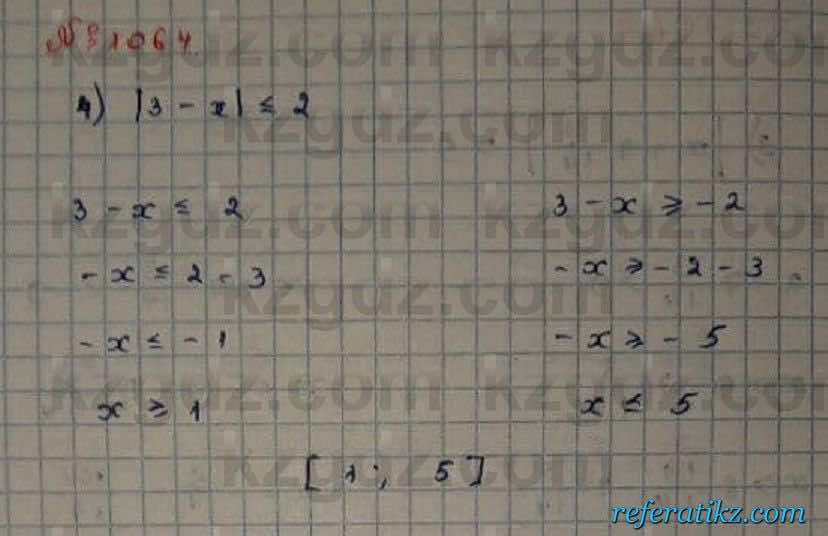 № 1064.
4) |3 - x| ≤ 2
3 - x ≤ 2
3 - x ⩾ - 2
- x ≤ 2 - 3
- x ⩾ - 2 - 3
- x ≤ - 1
- x ⩾ - 5
x ⩾ 1
x ≤ 5
[ 1 ; 5 ]
kzgdz.com
referatikz.com